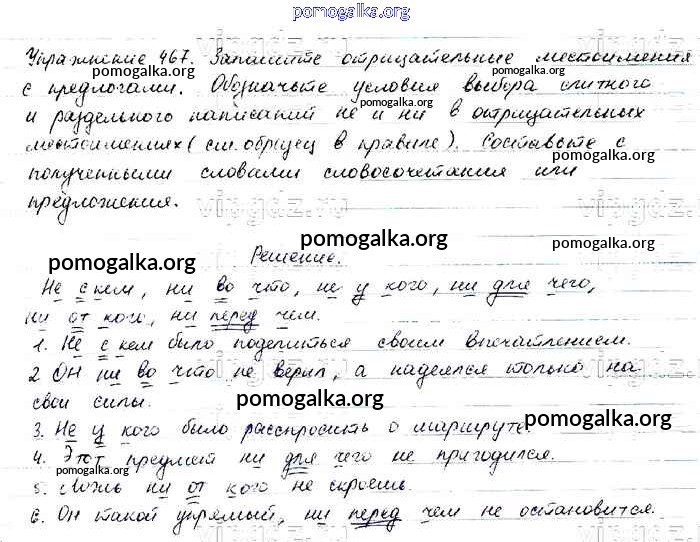 pomogalka.org
Упражнение 467. Запишите отрицательные местоимения
pomogalka.org
с предлогами. Обозначьте условия выбора слитного
pomogalka.org
и раздельного написаний не и ни в отрицательных
местоимениях (см. образец в правиле). Составьте с
pomogalka.org
полученными словами словосочетания или
предложения.
vingdz.ru
vingdz.ru
Решение.
pomogalka.org
pomogalka.org
pomogalka.org
Не с кем, ни во что, не у кого, ни для чего,
ни от кого, ни перед чем.
vingdz.ru
1. Не с кем было поделиться своим впечатлением.
pomogalka.org
2 Он ни во что не верил, а надеялся только на
свои силы.
pomogalka.org
pomogalka.org
3. Не у кого было расспросить о маршруте.
4. Этот предмет ни для чего не пригодился.
pomogalka.org
5. Ложь ни от кого не скроешь.
pomogalka.org
6. Он такой упрямый, ни перед чем не остановится.